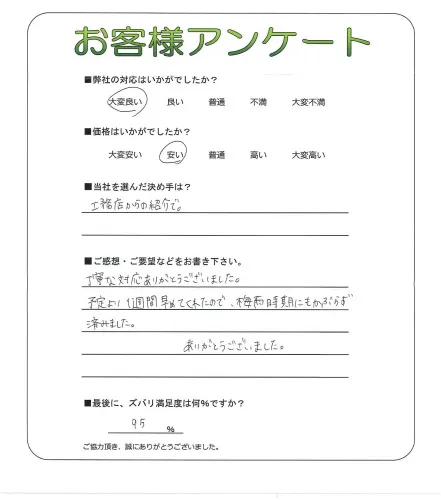 お客様アンケート
■弊社の対応はいかがでしたか?
大変良い 良い 普通 不満 大変不満
■価格はいかがでしたか?
大変安い 安い 普通 高い 大変高い
■当社を選んだ決め手は?
工務店からの紹介で。
■ご感想・ご要望などをお書き下さい。
丁寧な対応ありがとうございました。
予定より1週間早めてくれたので、梅雨時期にもかぶらず
済みました。
ありがとうございました。
■最後に、ズバリ満足度は何%ですか?
95 %
ご協力頂き、誠にありがとうございました。